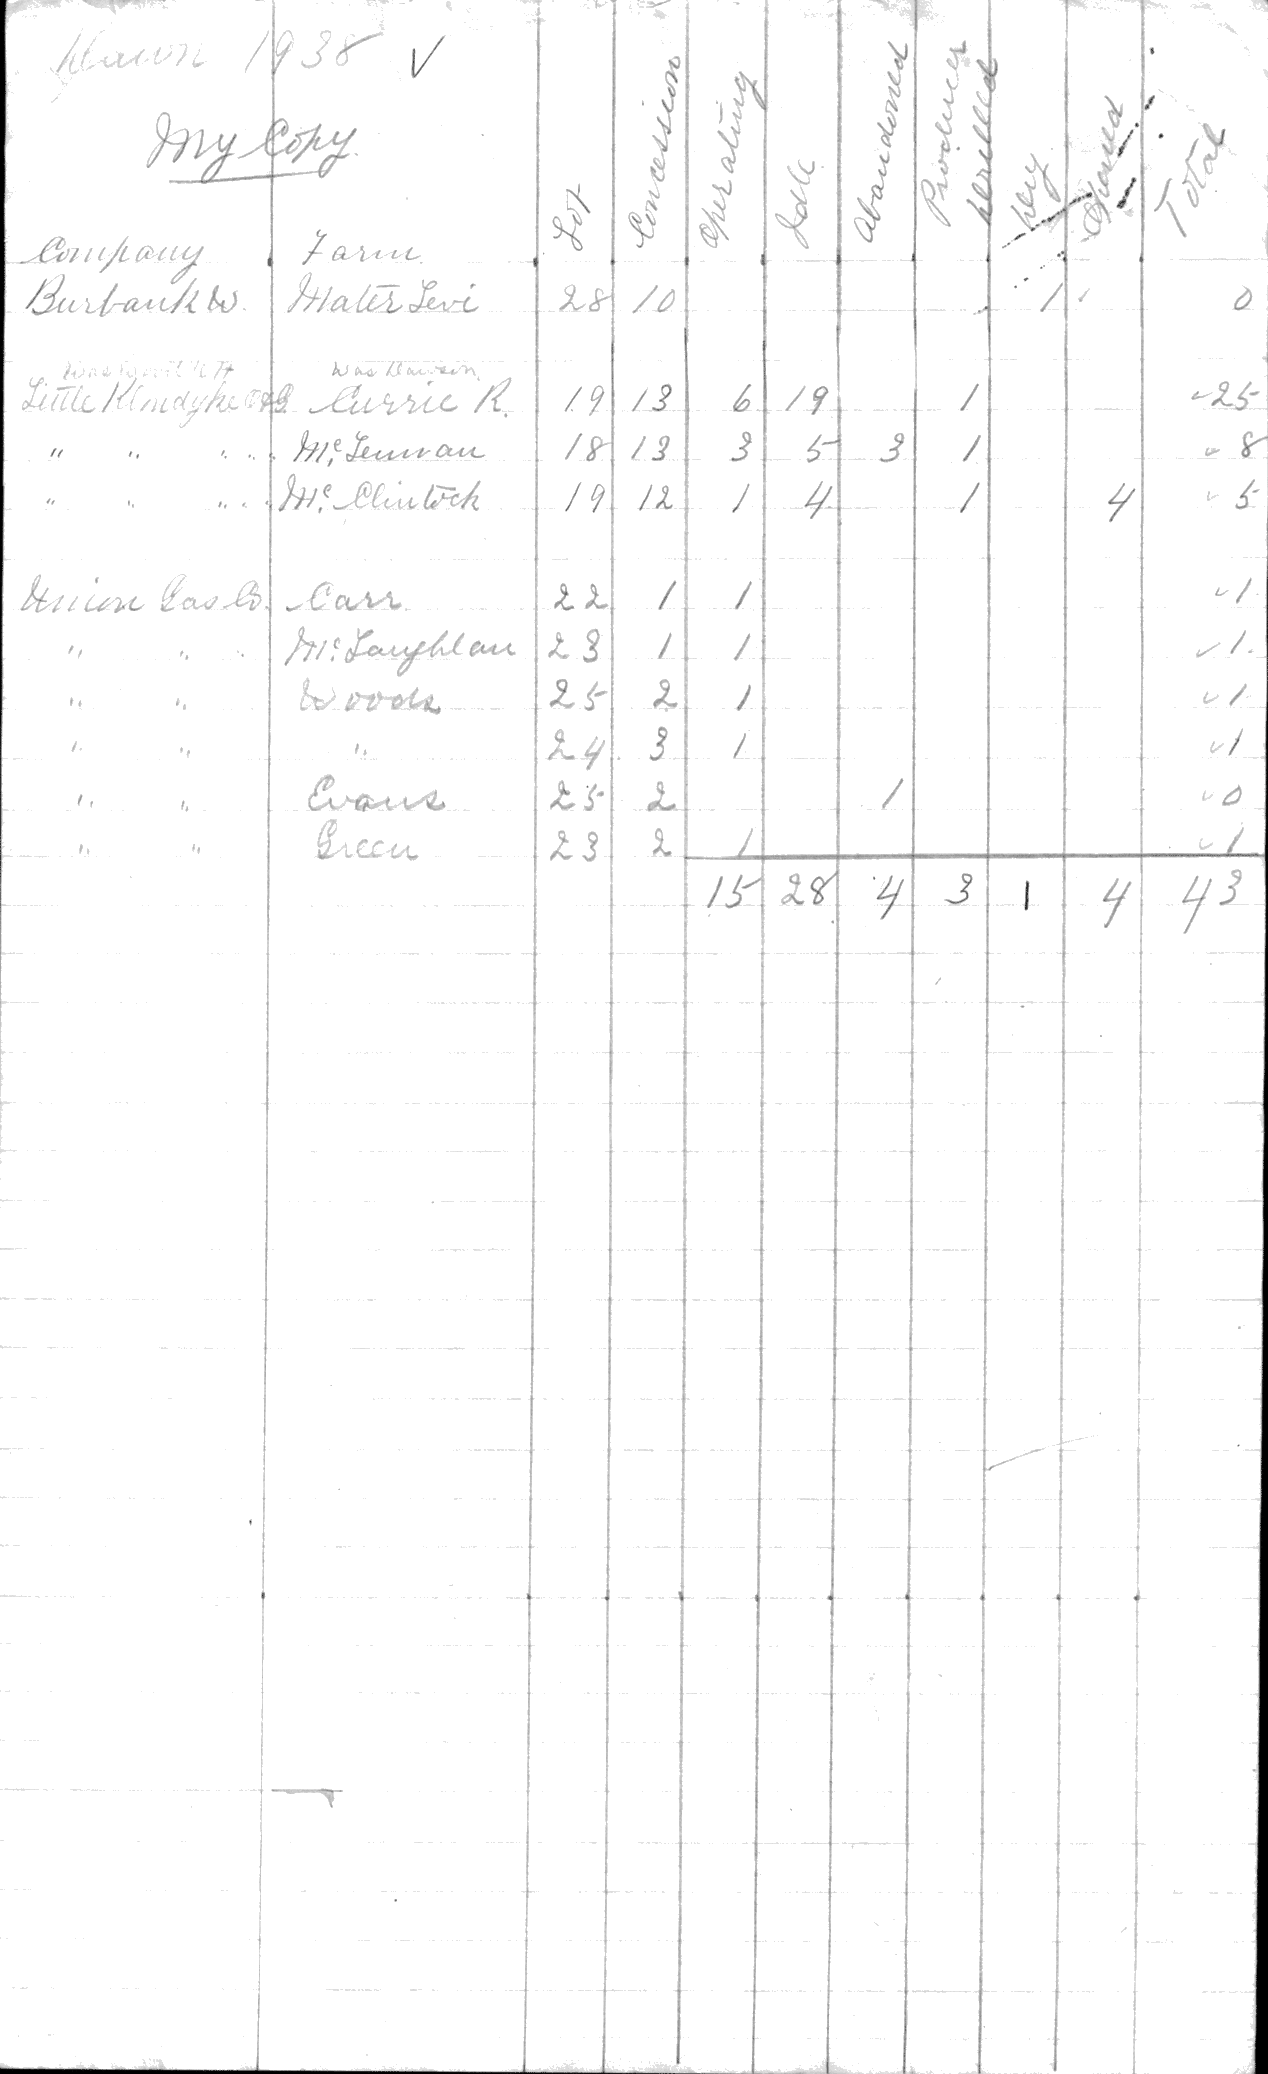 Dawn 1938 ✓
My Copy
Company Farm Lot Concession Operating Idle Abandoned Producer Drilled Dry Total
Burbank W. Mater Levi 28 10 1 0
Was Dawson
Little Klondyke O&G Currie R. 19 13 6 19 1 ✓25
" " " " Mc.Lennan 18 13 3 5 3 1 ✓8
" " " " Mc.Clintock 19 12 1 4 1 4 ✓5
Union Gas Co. Carr 22 1 1 ✓1
" " " Mc.Laughlan 23 1 1 ✓1
" " Woods 25 2 1 ✓1
" " " 24 3 1 ✓1
" " Evans 25 2 1 ✓0
" " Green 23 2 1 ✓1
15 28 4 3 1 4 43